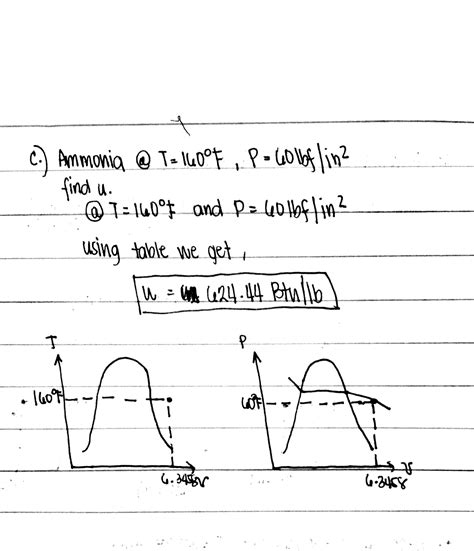 c.) Ammonia @ T=160°F , P=60 lbf/in²
find u.
@ T=160°F and P=60 lbf/in²
using table we get ,
u = 624.44 Btu/lb
T
160°F
6.3458
v
P
60°F
6.3458
v